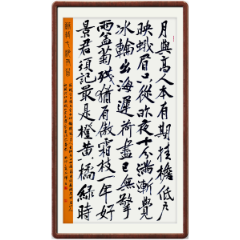 月與高人本有期挂檐低戶
映蛾眉只從昨夜十分滿漸覺
冰輪出海遲荷盡已無擎
雨蓋菊殘猶有傲霜枝一年好
景君須記最是橙黃橘綠時